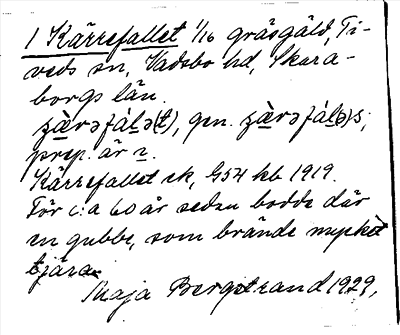 1 Kärrefallet 1/16 gräsgäld, Ti-
veds sn, Vadsbo hd, Skara-
borgs län.
ʒæ̀rəfál̲ə(t), gen. ʒæ̀rəfál̲ə)s;
prep. är ɪ.
Kärrefallet ek, G54 kb 1919.
För c:a 60 år sedan bodde där
en gubbe, som brände mycket
tjära.
Maja Bergstrand 1929,